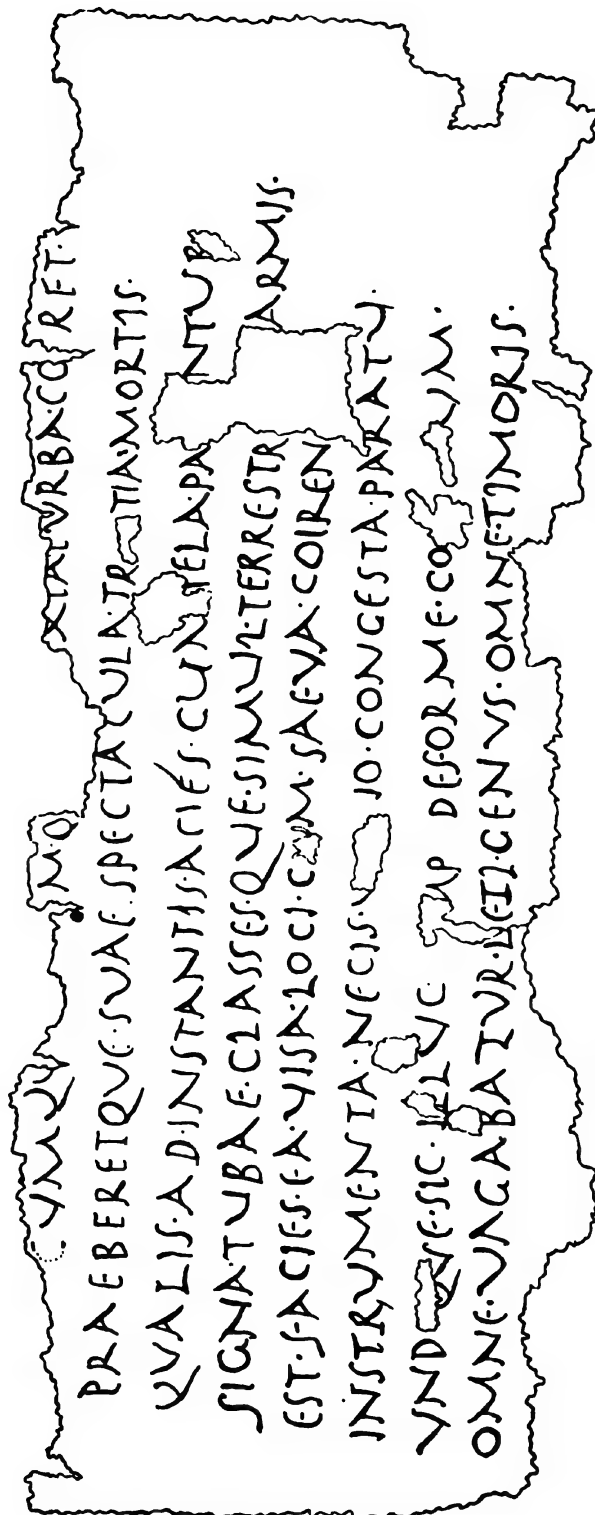 VMQV M·O XTA·TVRBA·CO RET·
PRAEBERETQVE·SVAE·SPECTACVLA·TR TIA·MORTIS·
QVALIS·AD·INSTANTIS·ACIÉS·CVM TELA·PA NTVR
SIGNA·TVBAE·CLASSESQVE·SIMVL·TERRESTR ARMIS·
EST·FACIES·EA·VISA·LOCI·C M·SAEVA·COIREN
INSTRVMENTA·NECIS·V IO·CONGESTA·PARATV·
VND QVE·SIC·ILLVC MP DEFORME·CO VM·
OMNE·VAGABATVR·LETI·GENVS·OMNE·TIMORIS·